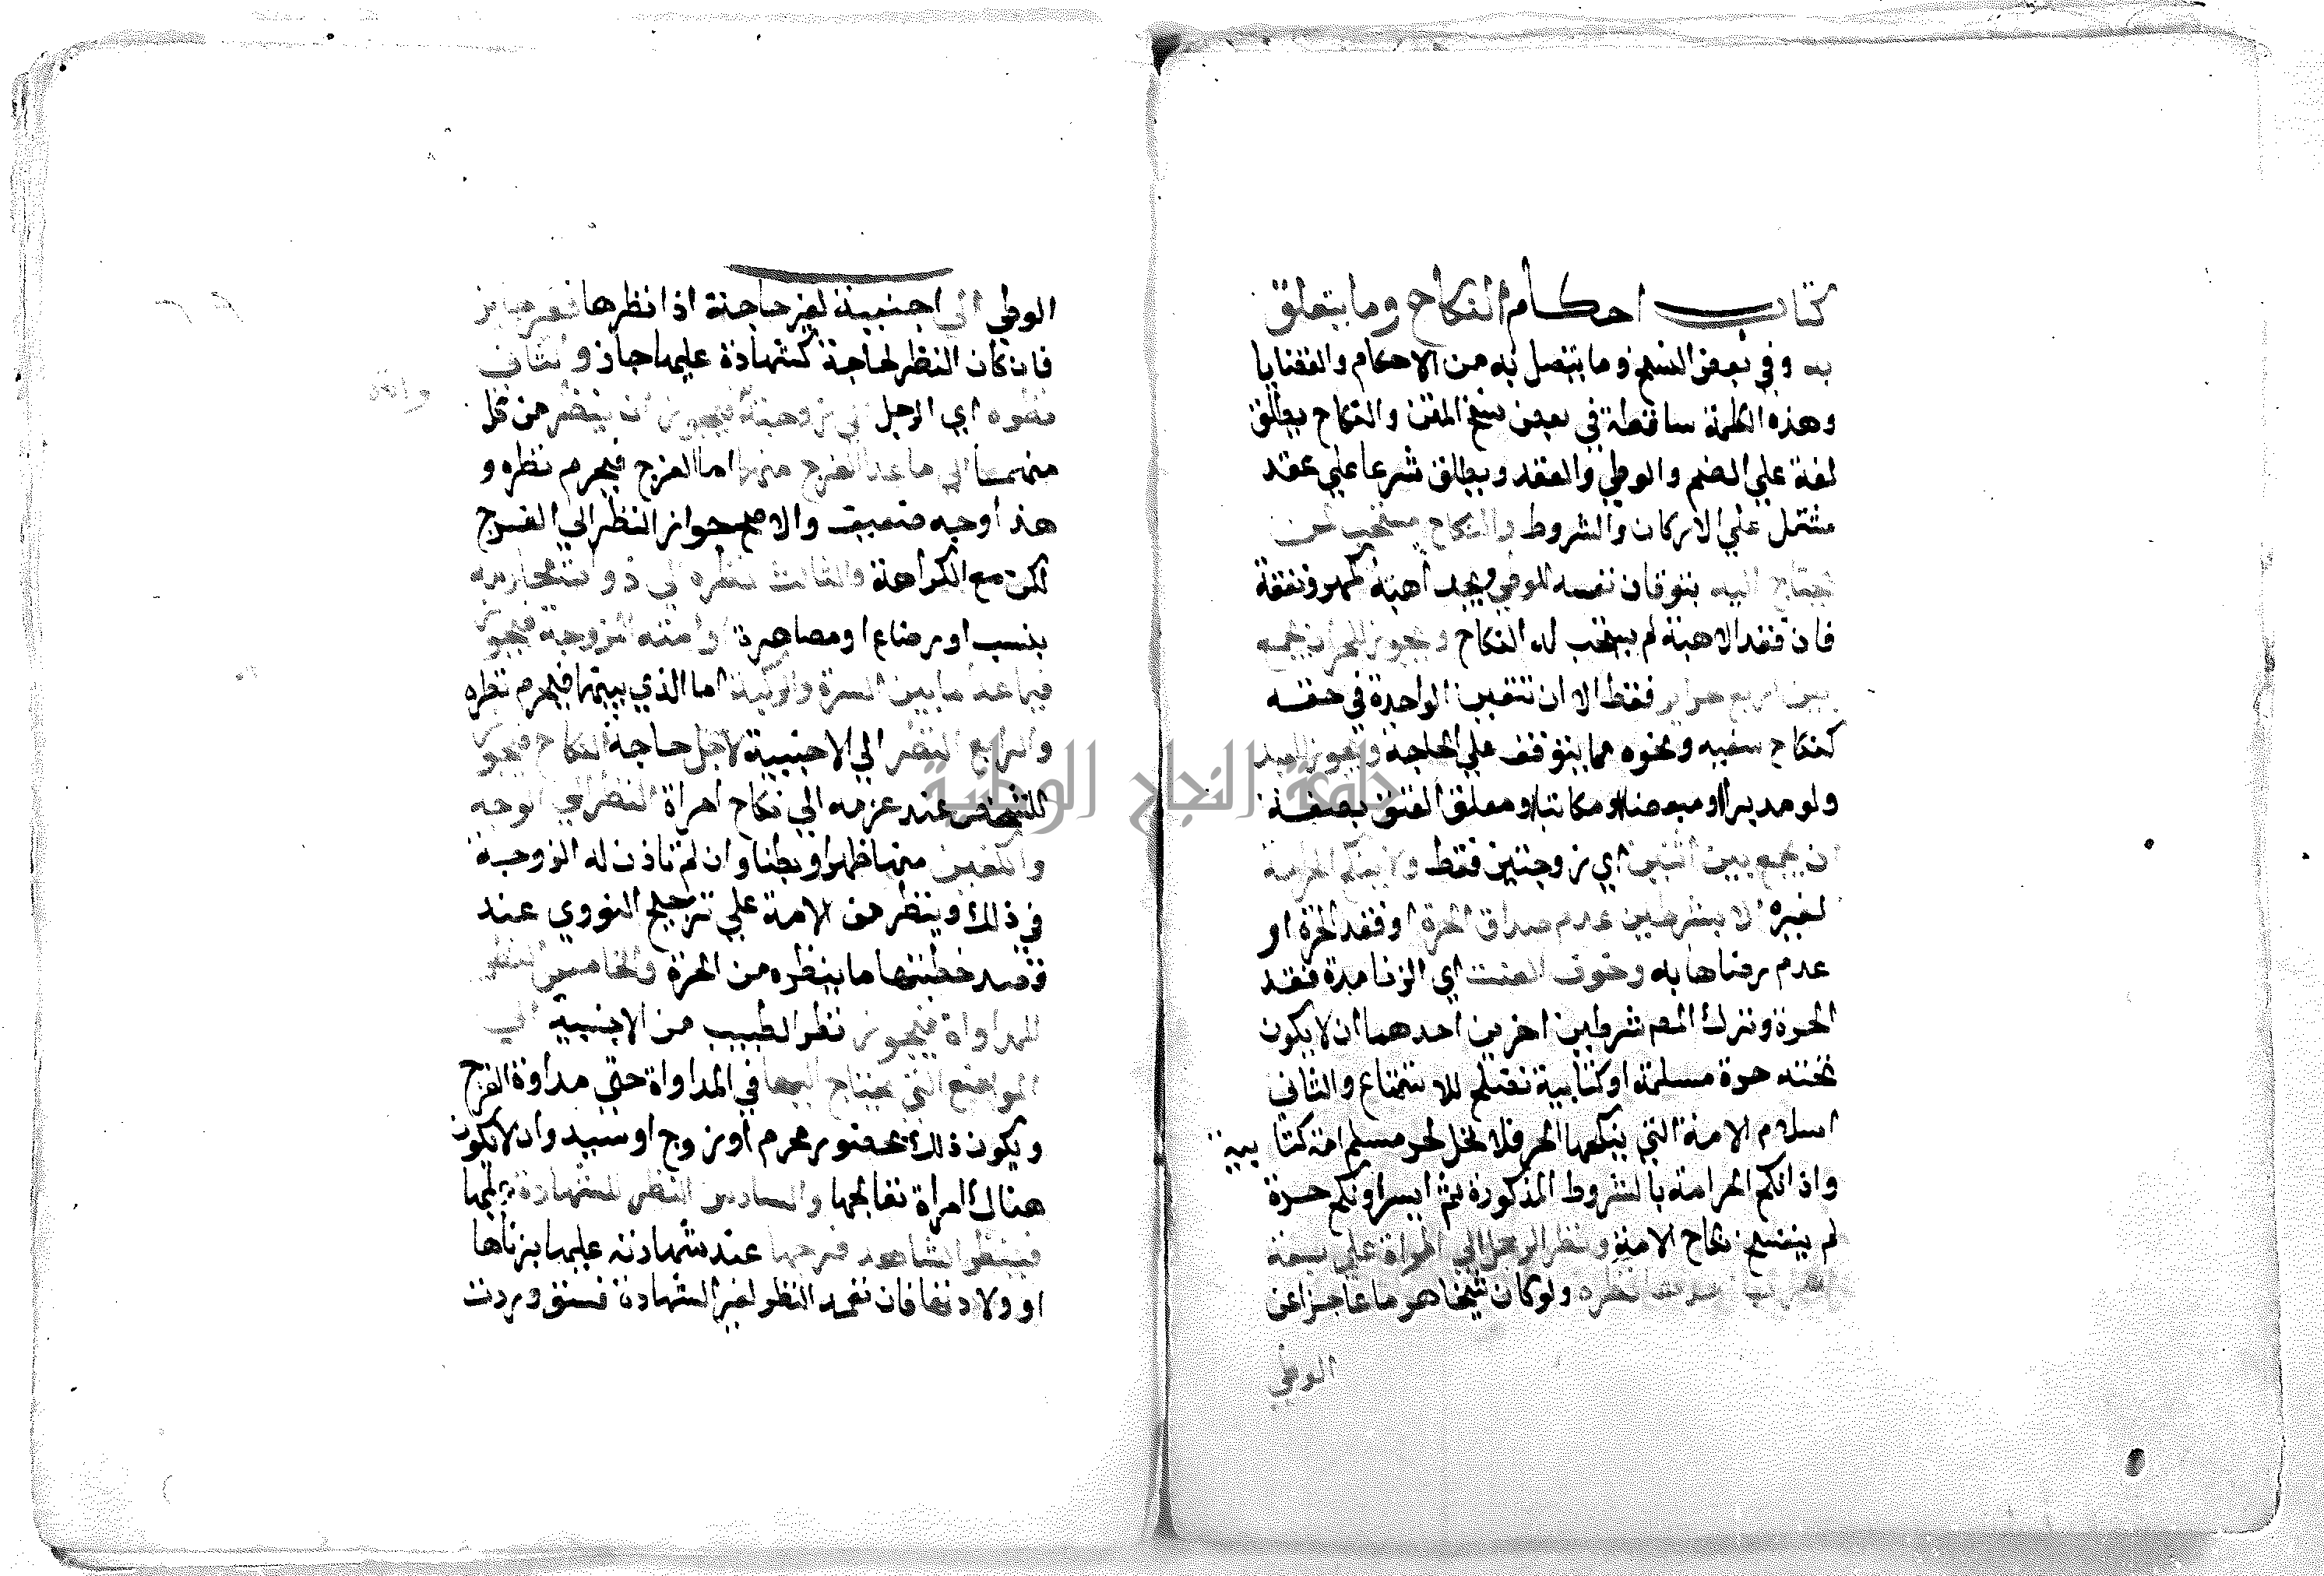 كتاب احكام النكاح وما يتعلق
به وفي بعض النسخ وما يتصل به من الاحكام والقضايا
وهذه الكلمة ساقطة في بعض نسخ المتن والنكاح يطلق
لغة علي الضم والوطي والعقد ويطلق شرعا علي عقد
مشتمل علي الاركان والشروط والنكاح مستحب لمن
يحتاج اليه بتوقان نفسه للوطي ويجد أهبته كمهر ونفقة
فان فقد الاهبة لم يستحب له النكاح ويجوز للحر ان يجمع
بين اربع حراير فقط الا ان تتعين الواحدة في حقه
كنكاح سفيه ونحوه مما يتوقف علي الحاجة ويجوز للعبد
ولو مدبرا او مبعضا او مكاتبا او معلق العتق بصفة
ان يجمع بين اثنين اي زوجتين فقط ولا ينكح الحر امة
لغيره الا بشرطين عدم صداق الحرة او فقد الحرة او
عدم رضاها به وخوف العنت اي الزنا مدة فقد
الحرة وترك المص شرطين اخرين احدهما ان لا يكون
تحته حرة مسلمة او كتابية تصلح للاستمتاع والثاني
اسلام الامة التي ينكحها الحر فلا تحل لحر مسلم امة كتابية
واذا نكح الحر امة بالشروط المذكورة ثم ايسر او نكح حرة
لم ينفسخ نكاح الامة ونظر الرجل الي المراة علي سبعة
اضرب احدها نظره ولو كان شيخا هرما عاجزا عن
الوطي
الوطي الي اجنبية لغير حاجة اذا نظرها فغير جايز
فان كان النظر لحاجة كشهادة عليها جاز والثاني
نظره اي الرجل الي زوجته فيجوز ان ينظر من كل
منهما الي ما عدا الفرج منها اما الفرج فيحرم نظره و
هذا وجه ضعيف والاصح جواز النظر الي الفرج
لكن مع الكراهة والثالث نظره الي ذوات محارمه
بنسب او رضاع او مصاهرة او امته المزوجة فيجوز
فيما عدا ما بين السرة والركبة اما الذي بينهما فيحرم نظره
والرابع النظر الي الاجنبية لاجل حاجة النكاح فيجوز
للشخص عند عزمه الي نكاح امراة النظر الي الوجه
والكفين منها ظهرا وبطنا وان لم تاذن له الزوجة
في ذلك وينظر من الامة علي ترجيح النووي عند
قصد خطبتها ما ينظره من الحرة والخامس النظر
للمداواة فيجوز نظر الطبيب من الاجنبية الي
المواضع التي يحتاج اليها في المداواة حتي مداوة الفرج
ويكون ذلك بحضور محرم او زوج او سيد وان لا يكون
هناك امراة تعالجها والسادس النظر للشهادة عليها
فينظر الشاهد فرجها عند شهادته عليها بزناها
او ولادتها فان تعمد النظر لغير الشهادة فسق وردت
جامعة النجاح الوطنية